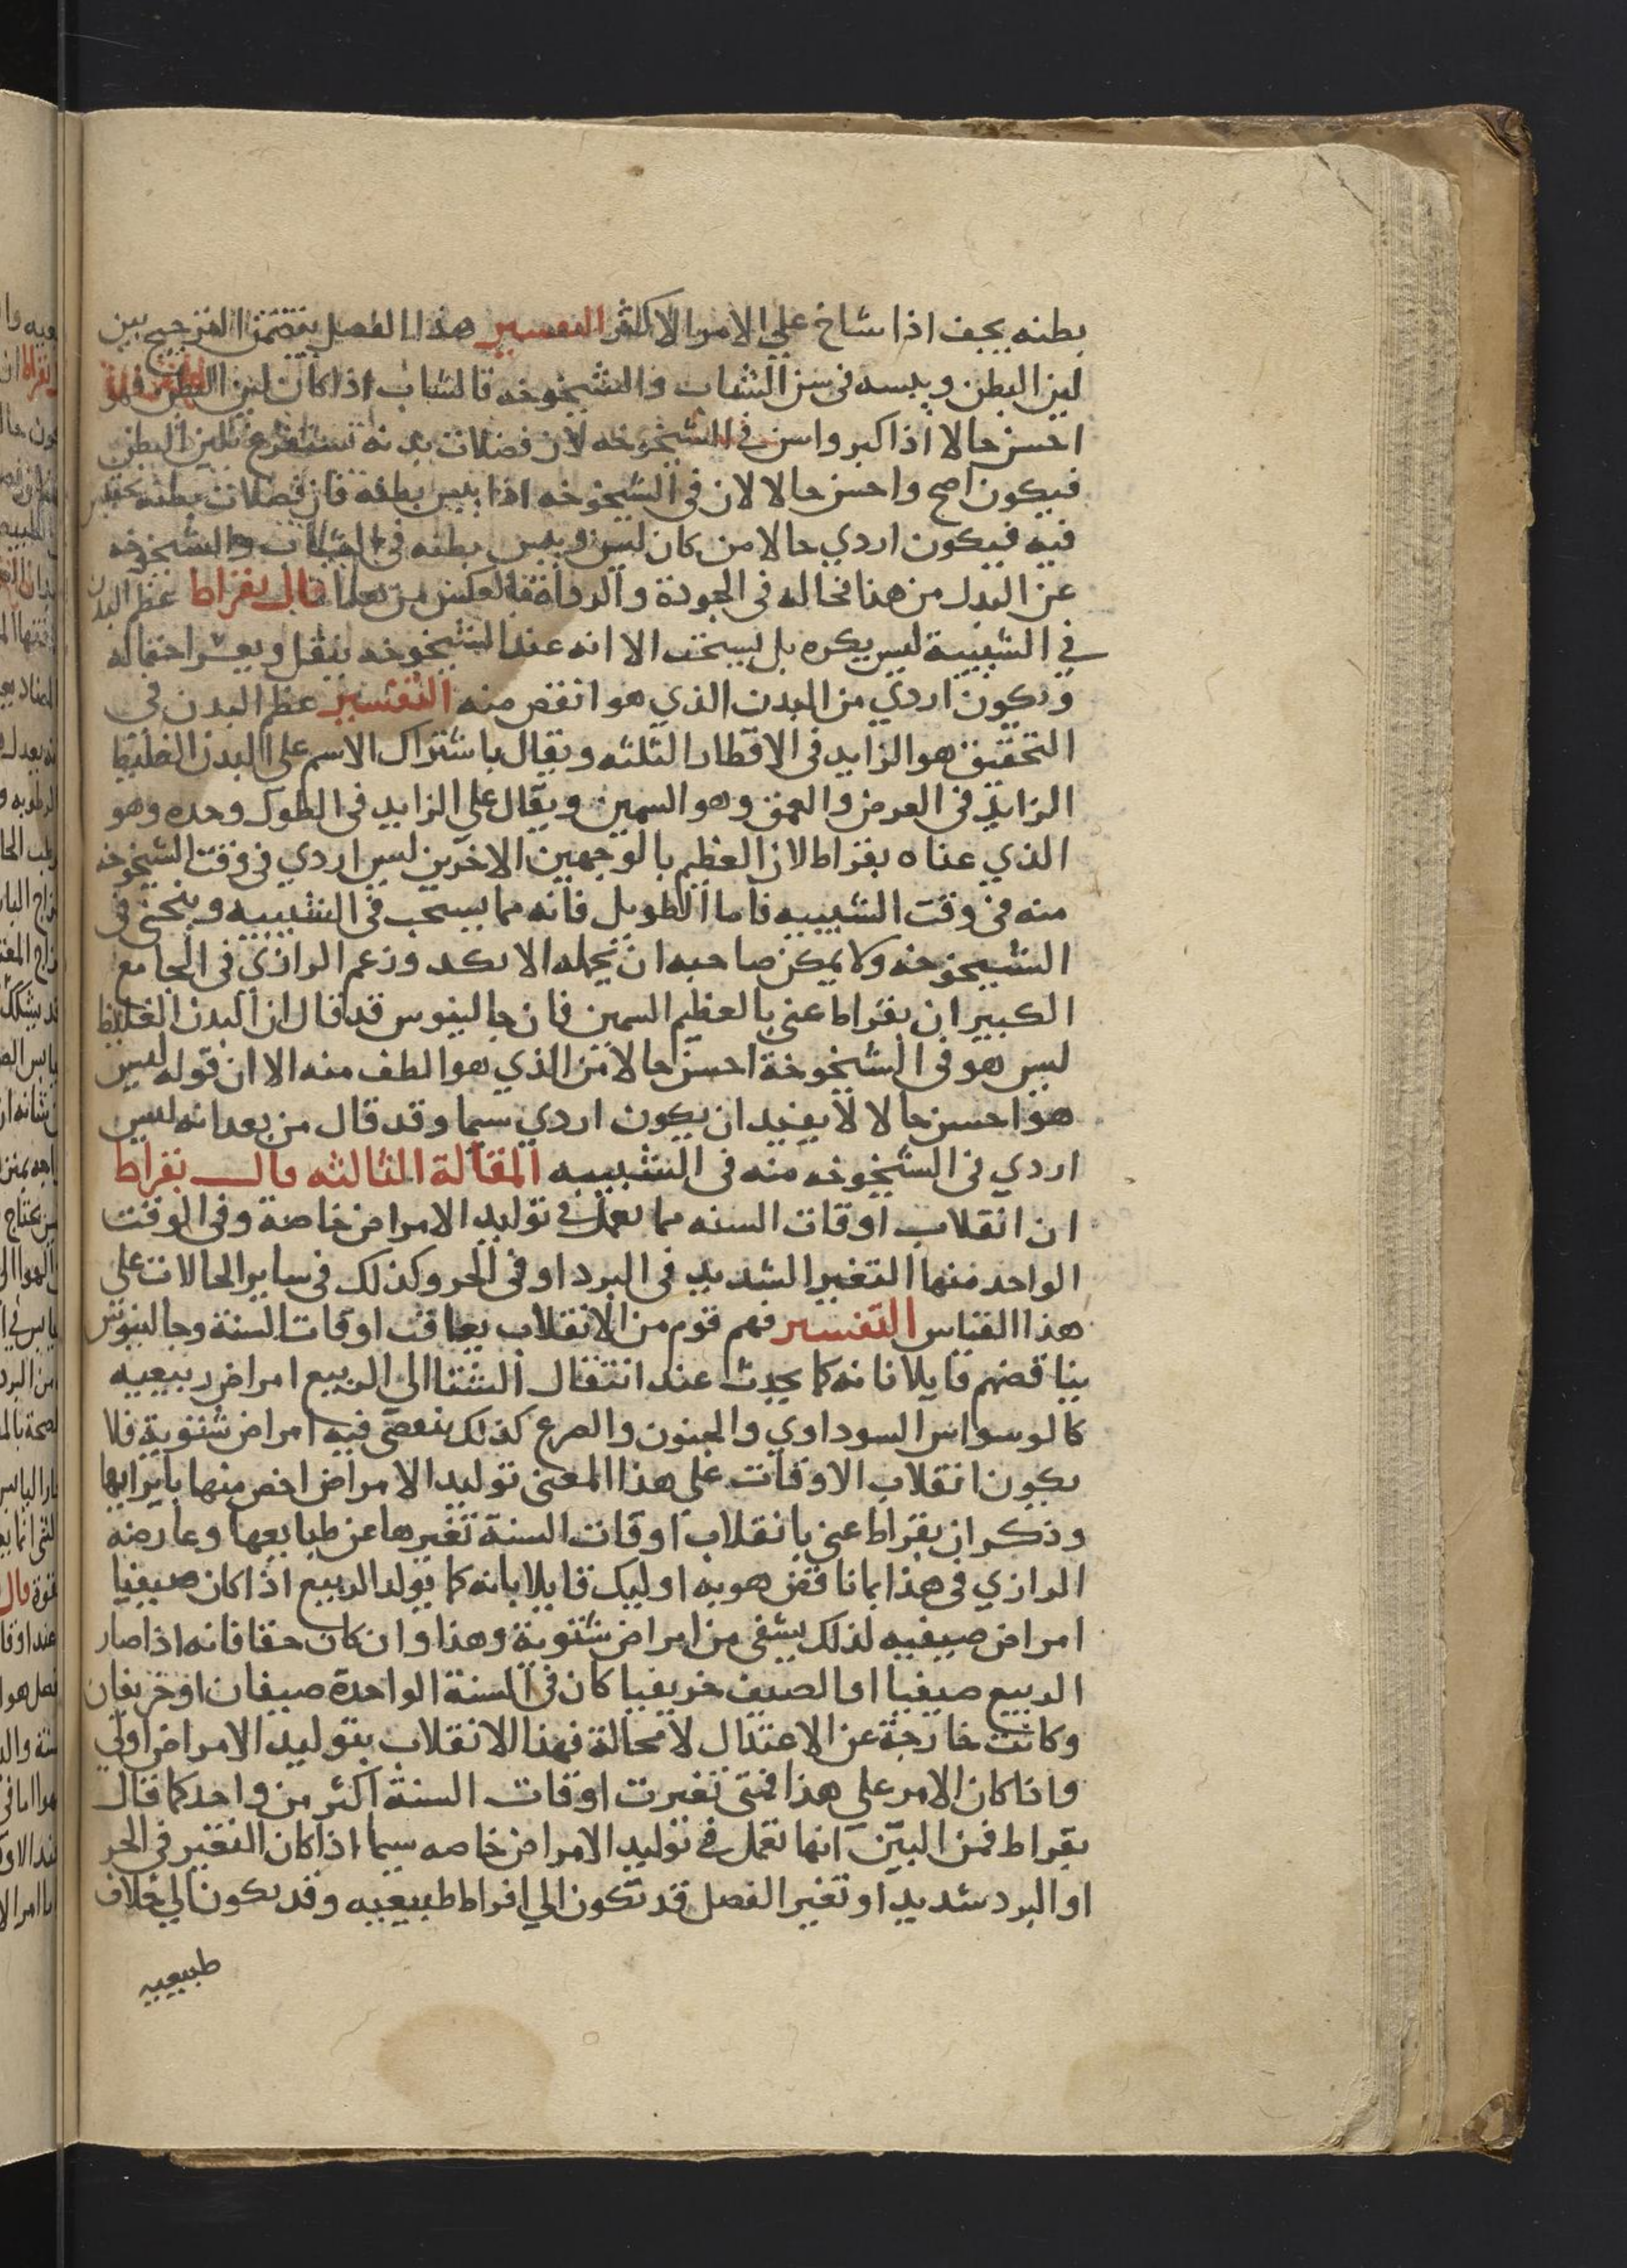 بطنه يجف اذا شاخ على الامر الاكثر التفسير هذا الفصل يتضمن الترجيح بين
لين البطن ويبسه في سن الشباب والشيخوخه فالشاب اذا كان لين البطن فهو
احسن حالا اذا كبر واسن في الشيخوخه لان فضلات بدنه تستفرغ بلين البطن
فيكون اصح واحسن حالا لان في الشيخوخه اذا يبس بطنه فان فضلات بطنه تحتبس
فيه فيكون اردي حالا من كان لين ويبس بطنه في الشباب والشيخوخه
عن البدل من هنا فحاله في الجودة والرداة بالعكس من قال بقراط عظم البدن
في الشبيبة ليس يكره بل يستحب الا انه عند الشيخوخه يثقل ويعسر احتماله
ويكون اردي من البدن الذي هو انقص منه التفسير عظم البدن في
التحقيق هو الزايد في الاقطار الثلثه ويقال باشتراك الاسم على البدن الغليظ
الزايد في العرض والعمق وهو السمين ويقال على الزايد في الطول وحده وهو
الذي عناه بقراط لان العظم بالوجهين الاخرين ليس اردي في وقت الشيخوخه
منه في وقت الشبيبه فاما الطويل فانه مما يستحب في الشبيبه وينحني في
الشيخوخه ولا يمكن صاحبه ان يحمله الا بكد وزعم الرازي في الجامع
الكبير ان بقراط عنى بالعظيم السمين فان جالينوس قد قال ان البدن الغليظ
ليس هو في الشيخوخة احسن حالا من الذي هو الطف منه الا ان قوله ليس
هو احسن حالا لا يفيد ان يكون اردي سيما وقد قال من بعد انه ليس
اردي في الشيخوخه منه في الشبيبه المقالة الثالثه قال بقراط
ان انقلاب اوقات السنه مما يعمل في توليد الامراض خاصة وفي الوقت
الواحد منها التغير الشديد في البرد او في الحر وكذلك في ساير الحالات على
هذا القياس التفسير فهم قوم من الانقلاب تعاقب اوقات السنة وجالينوس
يناقضهم قايلا فانه كما يحدث عند انتقال الشتا الي الربيع امراض ربيعيه
كالوسواس السوداوي والجنون والصرع كذلك ينقضي فيه امراض شتوية فلا
يكون انقلاب الاوقات على هذا المعنى توليد الامراض اخص منها بابرايها
وذكر ان بقراط عنى بانقلاب اوقات السنة تغيرها عن طبايعها وعارضه
الرازي في هذا بما ناقض هو به اوليك قايلا بانه كما يولد الربيع اذا كان صيفيا
امراض صيفيه لذلك يشفى من امراض شتوية وهذا وان كان حقا فانه اذا صار
الربيع صيفيا او الصيف خريفيا كان في السنة الواحدة صيفان او خريفان
وكانت خارجة عن الاعتدال لا محالة فهذا الانقلاب بتوليد الامراض اولي
واذا كان الامر علي هذا فمتى تغيرت اوقات السنة اكثر من واحد كما قال
بقراط فمن البين انها تعمل في توليد الامراض خاصه سيما اذا كان التغير في الحر
او البرد شديد او تغير الفصل قد تكون الي افراط طبيعيه وقد يكون الي خلاف
طبيعيه